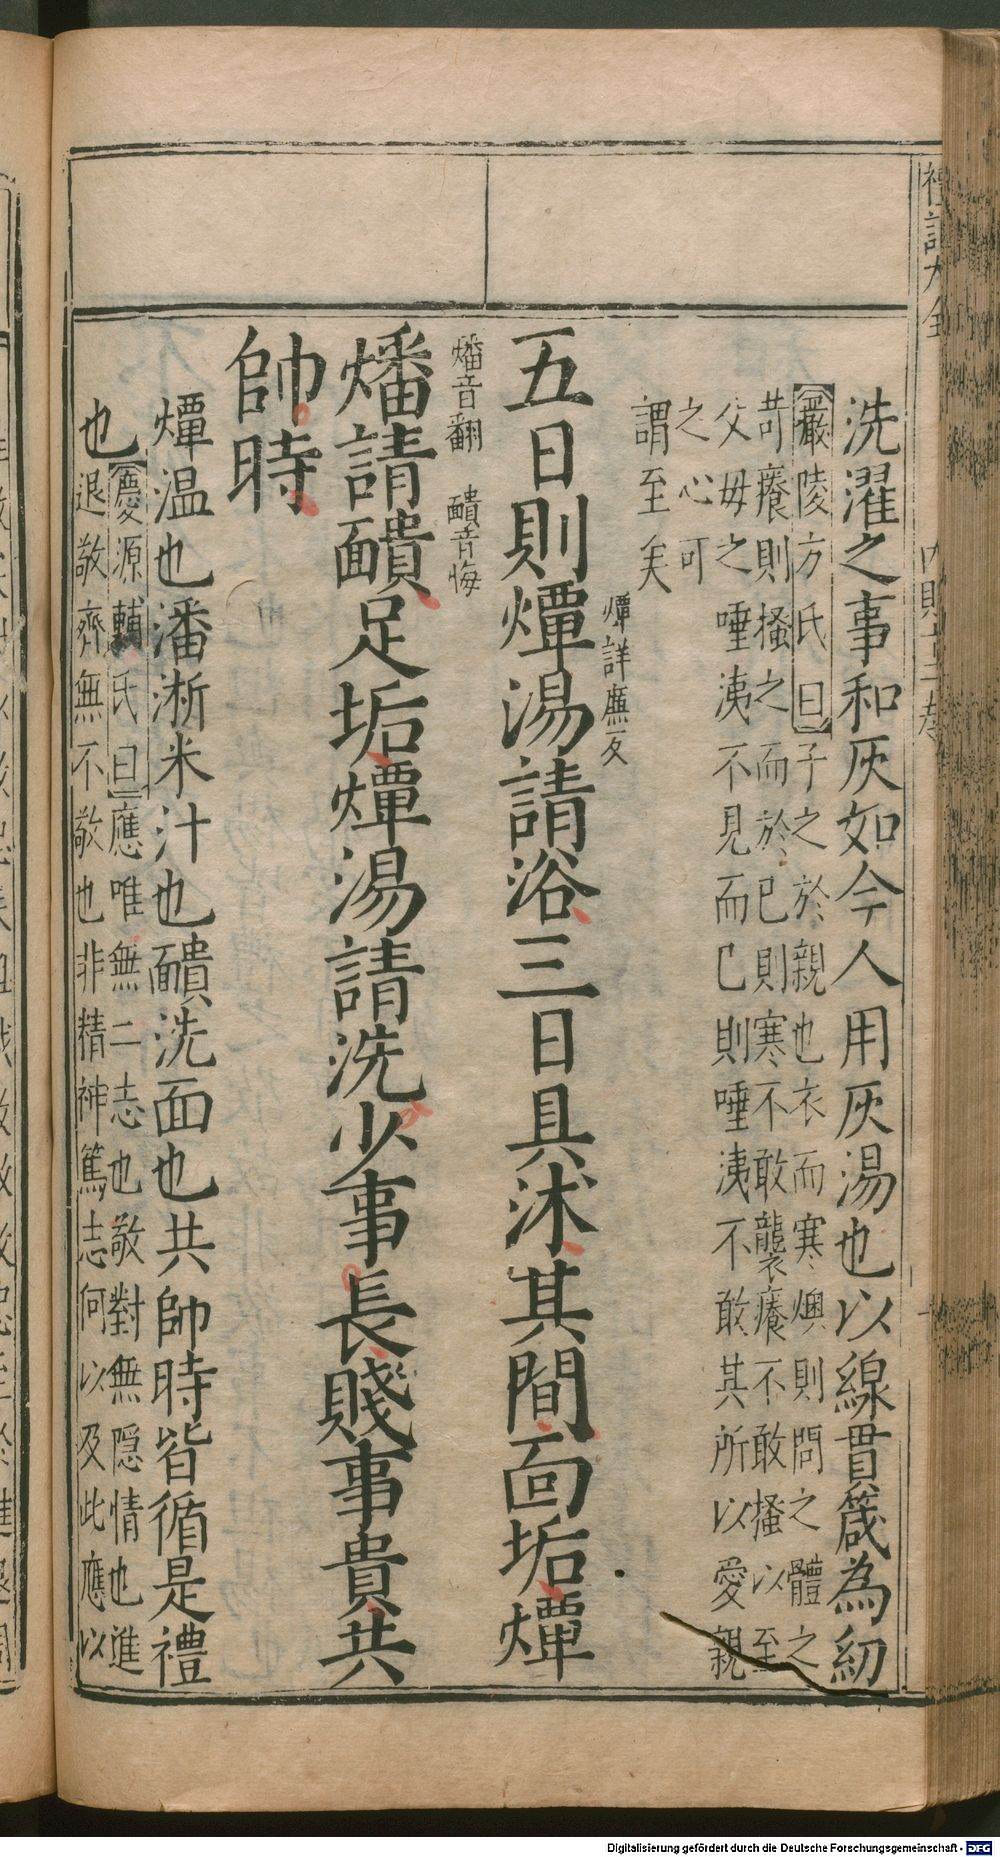 禮記大全　內則
洗濯之事和灰如今人用灰湯也以線貫箴為紉
嚴陵方氏曰子之於親也衣而寒燠則問之體之
苛癢則搔之而於已則寒不敢襲癢不敢搔以至
父母之唾洟不見而已則唾洟不敢其所以愛親
之心可
謂至矣
燂詳廉反
五日則燂湯請浴三日具沐其間面垢燂
燔音翻　靧音悔
燔請靧足垢燂湯請洗少事長賤事貴共
帥時
燂温也潘淅米汁也靧洗面也共帥時皆循是禮
也慶源輔氏曰應唯無二志也敬對無隱情也進
退敬齊無不敬也非精神篤志何以及此應以
Digitalisierung gefördert durch die Deutsche Forschungsgemeinschaft - DFG